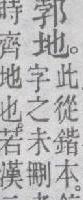 郭地。
此從鍇本。
字之未刪
時齊地也。若漢